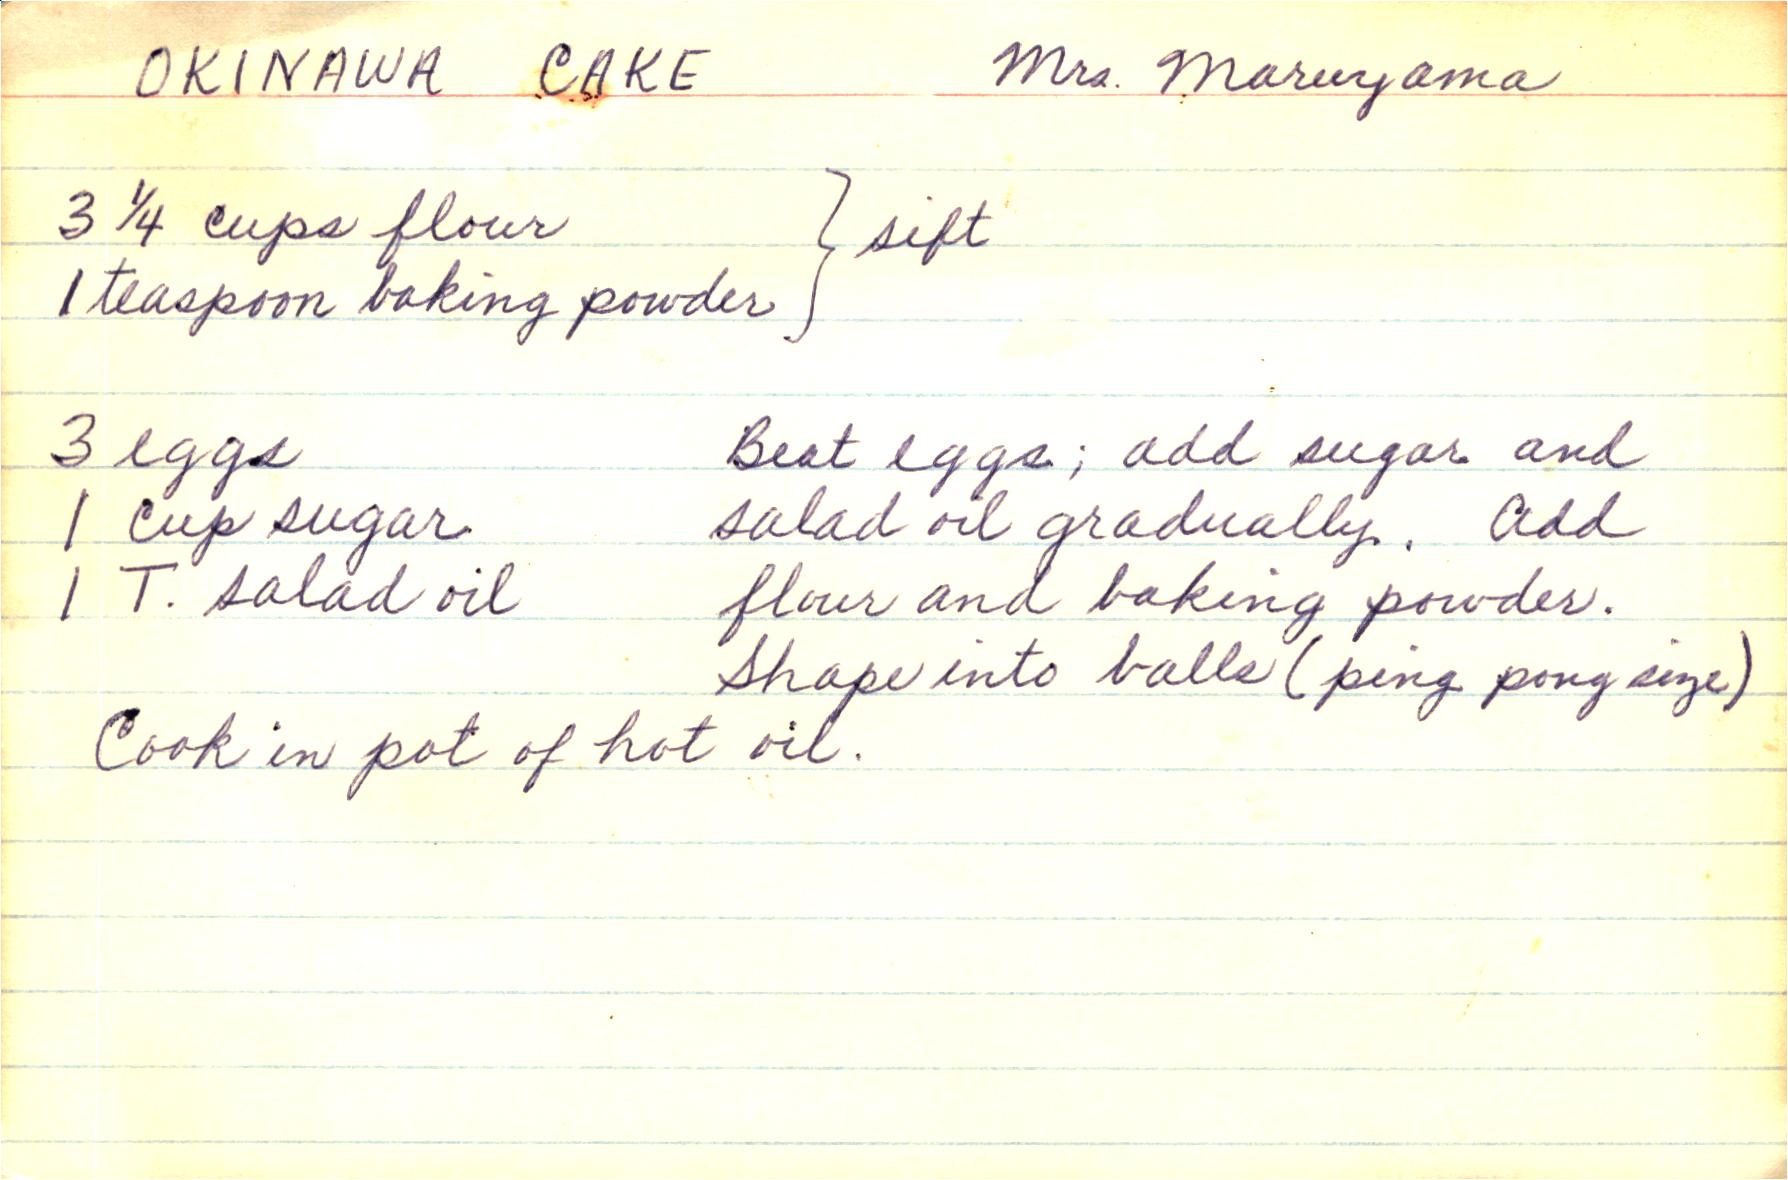 OKINAWA CAKE Mrs. Maruyama
3 1/4 cups flour
1 teaspoon baking powder } sift
3 eggs
1 cup sugar
1 T. salad oil
Beat eggs; add sugar and
salad oil gradually. Add
flour and baking powder.
Shape into balls (ping pong size)
Cook in pot of hot oil.